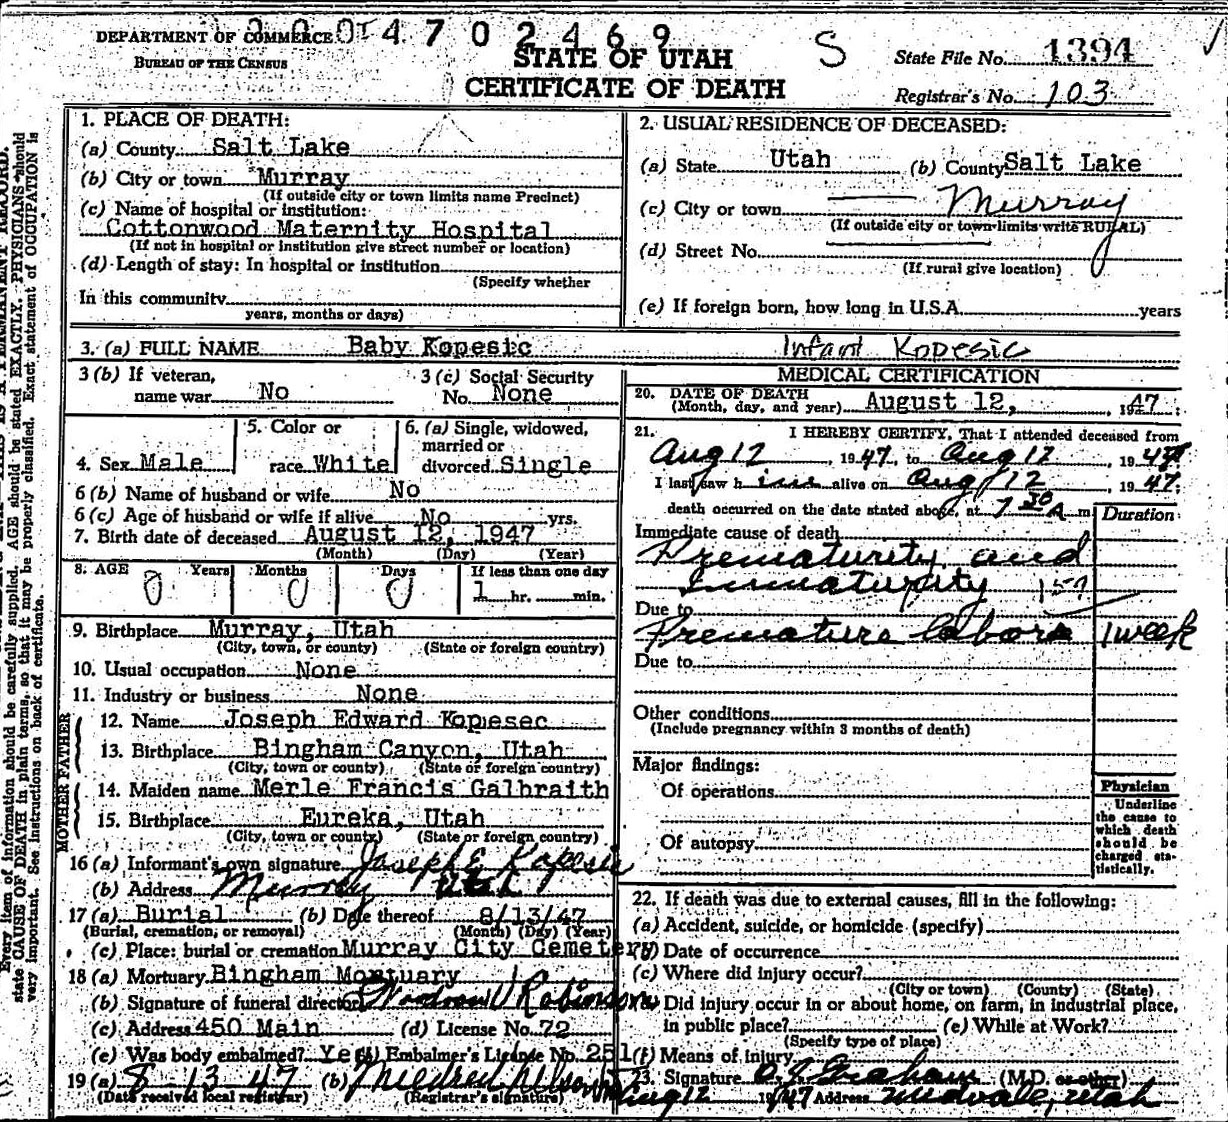 DEPARTMENT OF COMMERCE
4702469
BUREAU OF THE CENSUS
STATE OF UTAH
CERTIFICATE OF DEATH
S
State File No. 1394
Registrar's No. 103
1. PLACE OF DEATH:
(a) County Salt Lake
(b) City or town Murray
(If outside city or town limits name Precinct)
(c) Name of hospital or institution:
Cottonwood Maternity Hospital
(If not in hospital or institution give street number or location)
(d) Length of stay: In hospital or institution
(Specify whether
In this community
years, months or days)
2. USUAL RESIDENCE OF DECEASED:
(a) State Utah (b) County Salt Lake
(c) City or town Murray
(If outside city or town limits write RURAL)
(d) Street No.
(If rural give location)
(e) If foreign born, how long in U.S.A. years
3. (a) FULL NAME Baby Kopesic Infant Kopesic
3 (b) If veteran, name war No
3 (c) Social Security No. None
4. Sex Male
5. Color or race White
6. (a) Single, widowed, married or divorced Single
6 (b) Name of husband or wife No
6 (c) Age of husband or wife if alive No yrs.
7. Birth date of deceased August 12, 1947
(Month) (Day) (Year)
8. AGE Years Months Days If less than one day
0 0 0 1 hr. min.
9. Birthplace Murray, Utah
(City, town, or county) (State or foreign country)
10. Usual occupation None
11. Industry or business None
FATHER
12. Name Joseph Edward Kopesec
13. Birthplace Bingham Canyon, Utah
(City, town or county) (State or foreign country)
MOTHER
14. Maiden name Merle Francis Galbraith
15. Birthplace Eureka, Utah
(City, town or county) (State or foreign country)
16 (a) Informant's own signature Joseph E Kopesic
(b) Address Murray Utah
17 (a) Burial (b) Date thereof 8/13/47
(Burial, cremation, or removal) (Month) (Day) (Year)
(c) Place: burial or cremation Murray City Cemetery
18 (a) Mortuary Bingham Mortuary
(b) Signature of funeral director Woodrow V Robinson
(c) Address 450 Main (d) License No. 72
(e) Was body embalmed? Yes (f) Embalmer's License No. 251
19 (a) 8-13-47 (b) Mildred
(Date received local registrar) (Registrar's signature)
MEDICAL CERTIFICATION
20. DATE OF DEATH
(Month, day, and year) August 12, 1947
21. I HEREBY CERTIFY, That I attended deceased from
Aug 12, 1947, to Aug 12, 1947
I last saw him alive on Aug 12, 1947;
death occurred on the date stated above, at 7 30 A m.
Duration
Immediate cause of death
Prematurity and
Immaturity 159
Due to
Premature labors 1 week
Due to
Other conditions
(Include pregnancy within 3 months of death)
Major findings:
Of operations
Of autopsy
Physician
Underline the cause to which death should be charged statistically.
22. If death was due to external causes, fill in the following:
(a) Accident, suicide, or homicide (specify)
(b) Date of occurrence
(c) Where did injury occur?
(City or town) (County) (State)
(d) Did injury occur in or about home, on farm, in industrial place,
in public place? (e) While at Work?
(Specify type of place)
(f) Means of injury
23. Signature O. J. Graham (M.D. or other)
Aug 12 1947 Address Midvale, Utah
Every item of information should be carefully supplied. AGE should be stated EXACTLY. PHYSICIANS should
state CAUSE OF DEATH in plain terms, so that it may be properly classified. Exact statement of OCCUPATION is
very important. See instructions on back of certificate.